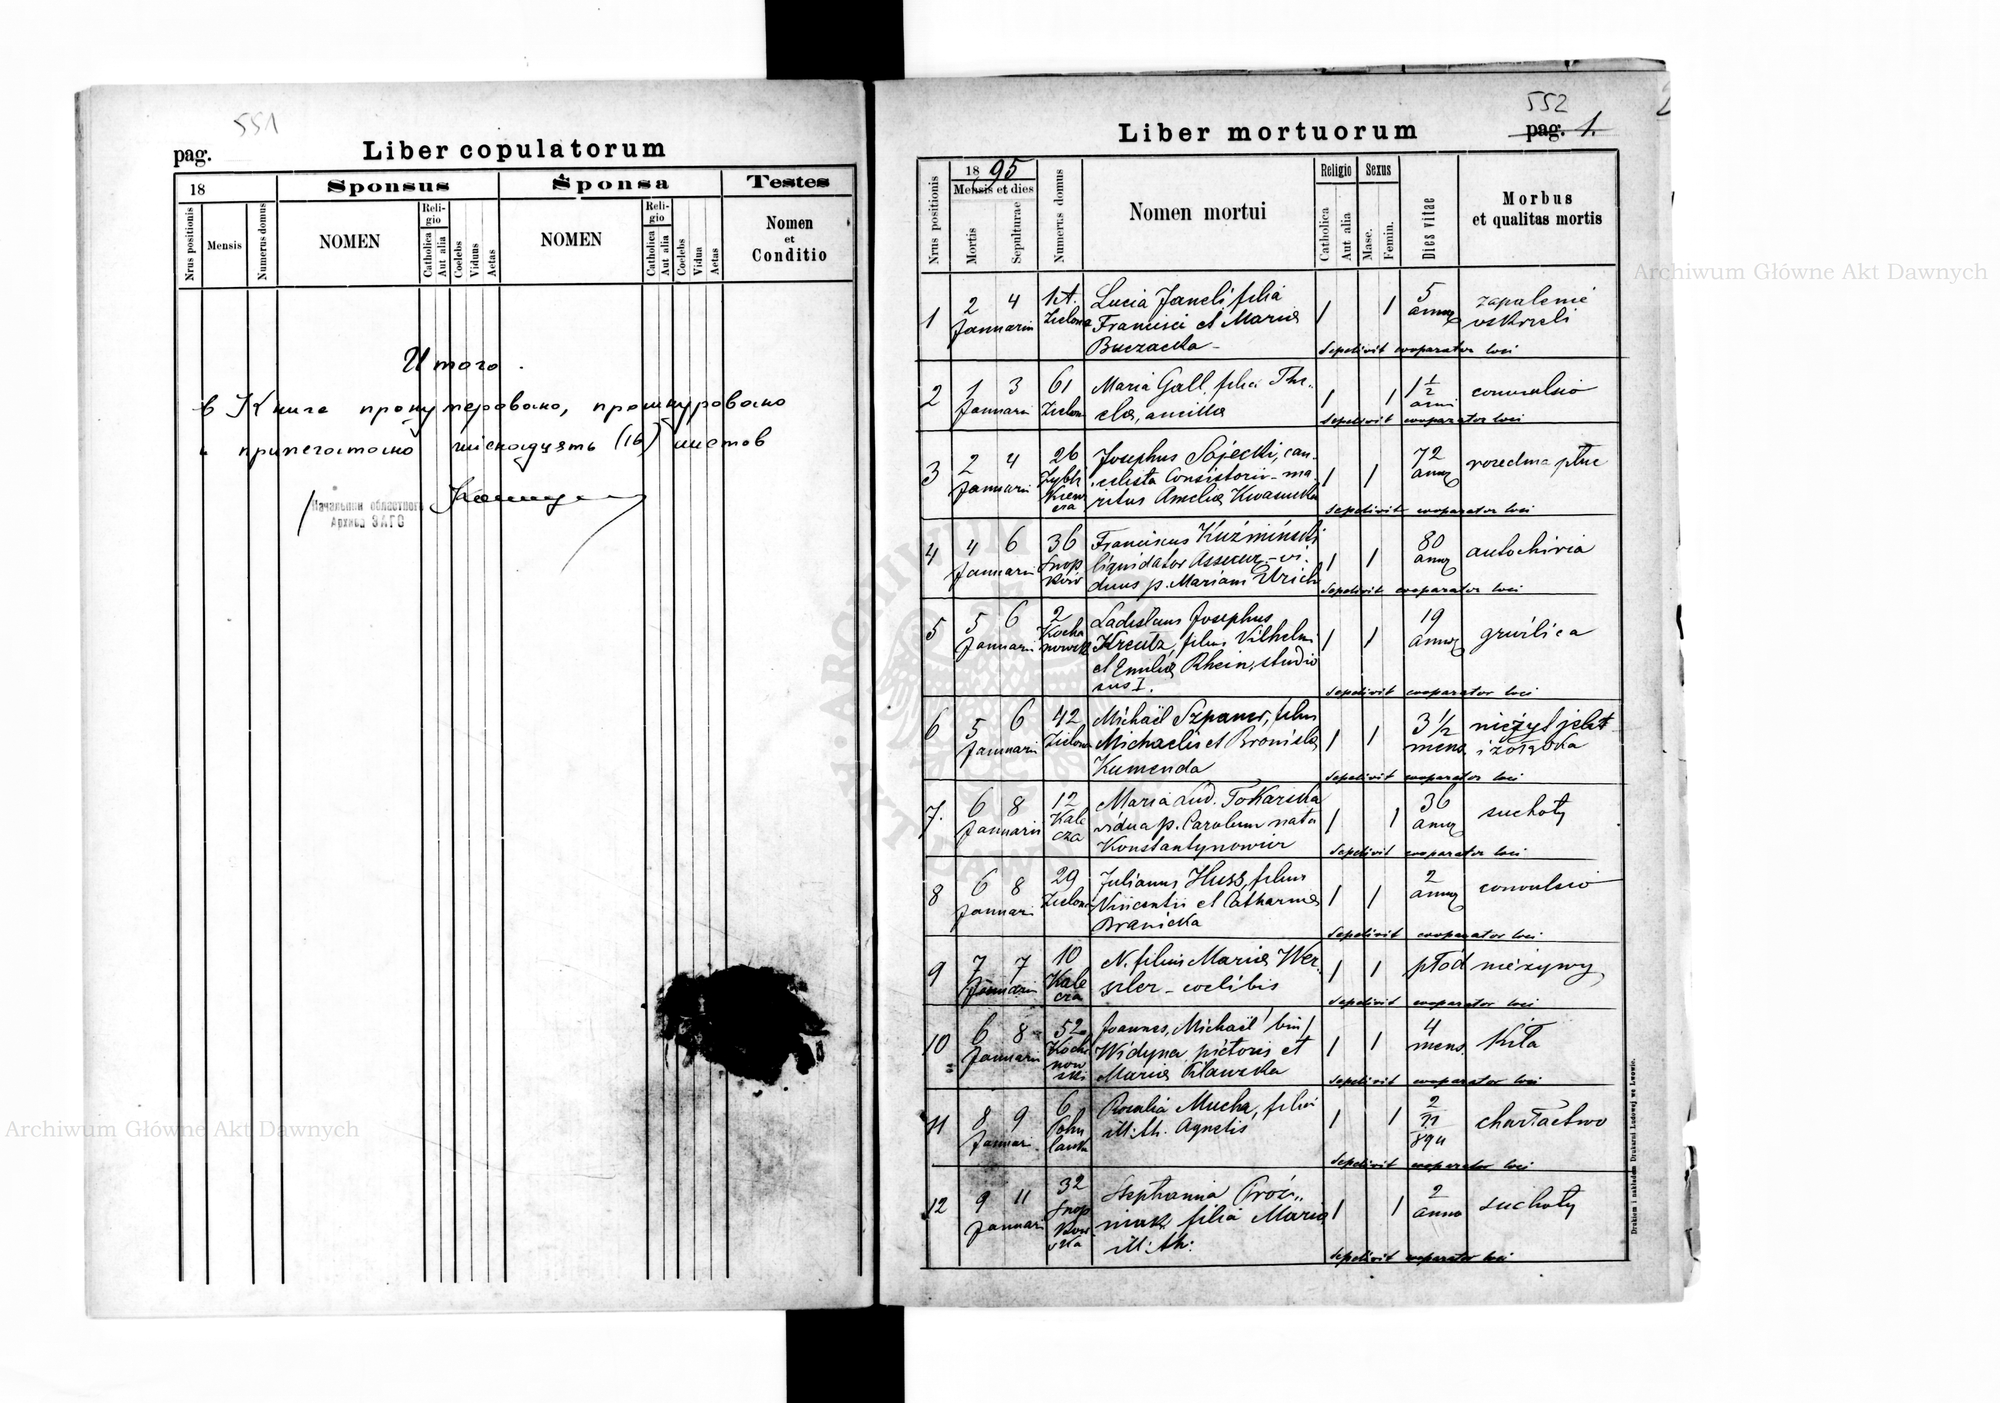 551
pag.
Liber copulatorum
18
Sponsus
Sponsa
Testes
Nrus positionis
Mensis
Numerus domus
NOMEN
Religio
Catholica
Aut alia
Coelebs
Viduus
Aetas
NOMEN
Religio
Catholica
Aut alia
Coelebs
Vidua
Aetas
Nomen
et
Conditio
Итого
в Книге пронумеровано, прошнуровано
и припечатано шіснадцять (16) листов
Начальник областного
Архива ЗАГС
552
Liber mortuorum
pag. 1.
1895
Mensis et dies
Nrus positionis
Mortis
Sepulturae
Numerus domus
Nomen mortui
Religio
Catholica
Aut alia
Sexus
Masc.
Femin.
Dies vitae
Morbus
et qualitas mortis
1
2 4
Januarii
Zielona
Lucia Janeli filia
Francisci et Mariae
Buczacka
1 1
5
annor
zapalenie
oskrzeli
Sepelivit cooperator loci
2
1 3
Januarii
61
Zielona
Maria Gall filia The-
clae, ancilla
1 1
1 1/2
anni
convulsio
Sepelivit cooperator loci
3
2 4
Januarii
26
Zybli
kiewi
cza
Josephus Sojecki, can-
celista Consistorii - ma-
ritus Ameliae
1 1
72
annor
rozedma płuc
Sepelivit cooperator loci
4
4 6
Januarii
36
Snop
ków
Franciscus Kuźmiński
liquidator Assecur - vi-
duus p. Mariam
1 1
80
annor
autochiria
Sepelivit cooperator loci
5
5 6
Januarii
2
Kocha
nowsk
Ladislaus Josephus
Kreutz, filius Vilhelmi
et Emiliae Rhein, studio
sus I.
1 1
19
annor
gruźlica
Sepelivit cooperator loci
6
5 6
Januarii
42
Zielona
Michaël Szpaner, filius
Michaelis et Bronislae
Kumenda
1 1
3 1/2
mens.
nieżyt jelit
i żołądka
Sepelivit cooperator loci
7.
6 8
Januarii
12
Kale
cza
Maria Lud. Tokarska
vidua p. Carolum nata
Konstantynowicz
1 1
36
annor
suchoty
Sepelivit cooperator loci
8
6 8
Januarii
29
Zielona
Julianus Huss, filius
Vincentii et Catharinae
Branicka
1 1
2
annor
convulsio
Sepelivit cooperator loci
9
7 7
Januarii
10
Kale
cza
N. filius Mariae Wer-
szler - coelibis
1 1
płód nieżywy
Sepelivit cooperator loci
10
6 8
Januarii
52
Kocha
now
ski
Joannes, Michaël /bin/
Widyna, pictoris et
Mariae
1 1
4
mens.
kiła
Sepelivit cooperator loci
11
8 9
Januari
6
Pohu
lanka
Rosalia Mucha, filia
ill: th. Agnetis
1 1
2
11
894
charłactwo
Sepelivit cooperator loci
12
9 11
Januari
32
Snop
kow
ska
Stephania Proć-
niak filia Mariae
ill: th:
1 1
2
anno
suchoty
Sepelivit cooperator loci
Drukiem i nakładem Drukarni Ludowej we Lwowie.
Archiwum Główne Akt Dawnych
Archiwum Główne Akt Dawnych